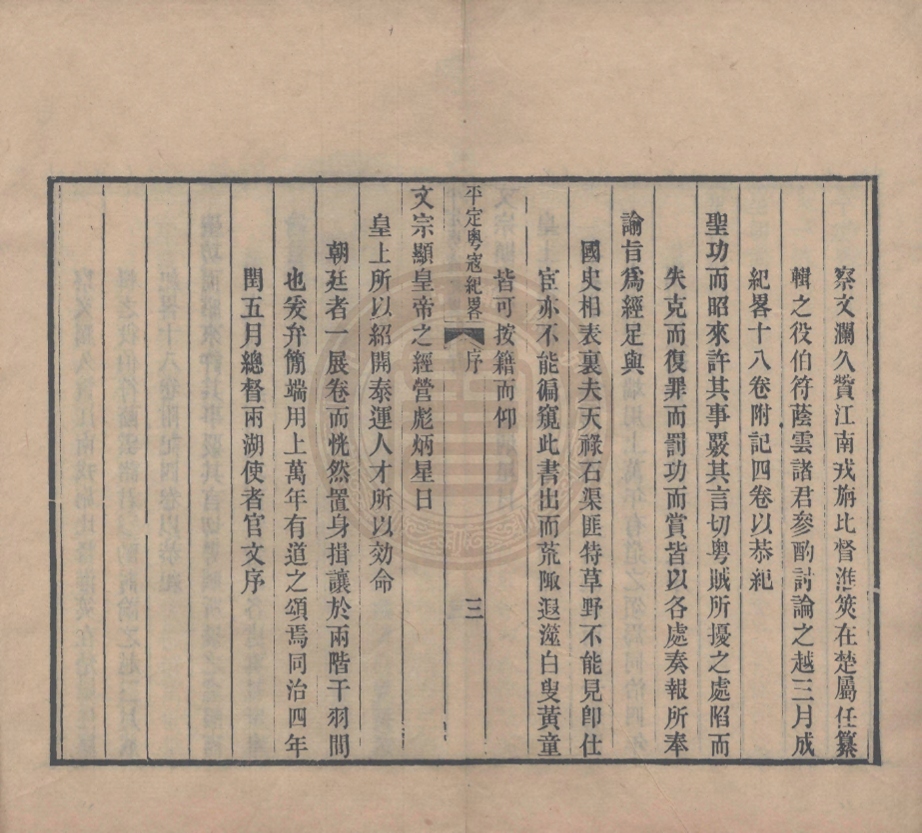 察文瀾久贊江南戎旃比督淮筴在楚屬任纂
輯之役伯符蔭雲諸君參酌討論之越三月成
紀畧十八卷附記四卷以恭紀
聖功而昭來許其事覈其言切粵賊所擾之處陷而
失克而復罪而罰功而賞皆以各處奏報所奉
諭旨爲經足與
國史相表裏夫天祿石渠匪特草野不能見卽仕
宦亦不能徧窺此書出而荒陬遐澨白叟黃童
皆可按籍而仰
平定粵寇紀畧 序 三
文宗顯皇帝之經營彪炳星日
皇上所以紹開泰運人才所以効命
朝廷者一展卷而恍然置身揖讓於兩階干羽間
也爰弁簡端用上萬年有道之頌焉同治四年
閏五月總督兩湖使者官文序